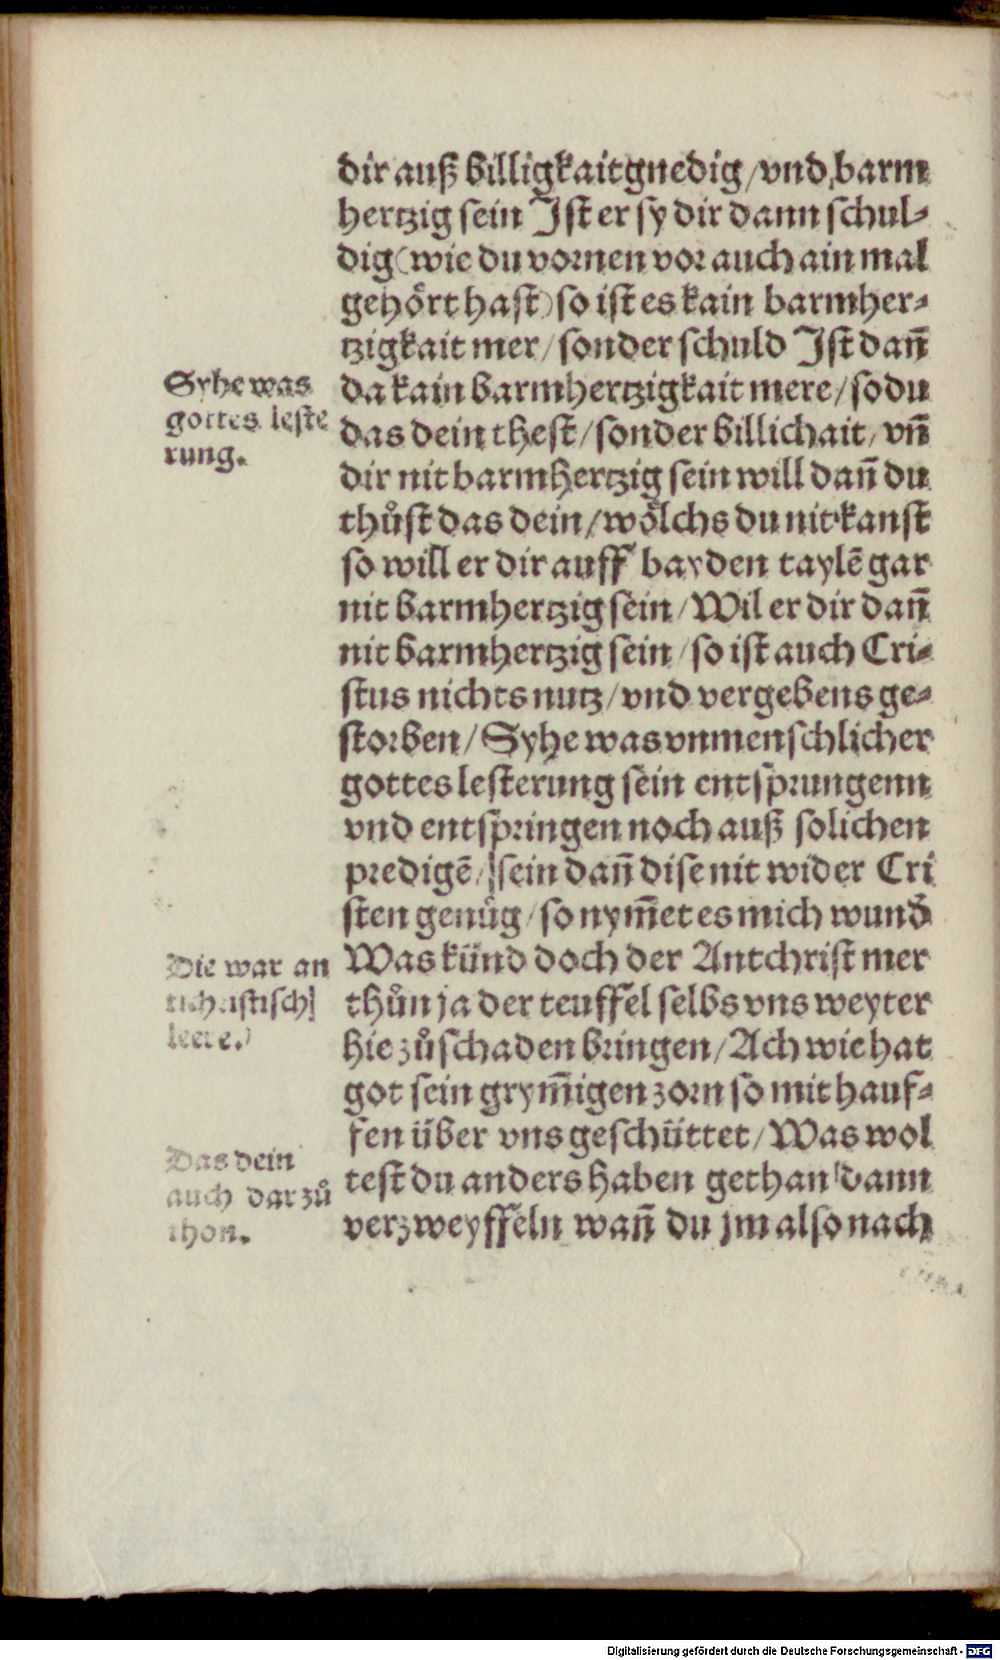 dir auß billigkait gnedig / vnd barm
hertzig sein Ist er sy dir dann schul⸗
dig (wie du vornen vor auch ain mal
gehört hast) so ist es kain barmher⸗
tzigkait mer / sonder schuld Ist dañ
da kain barmhertzigkait mere / so du
das dein thest / sonder billichait / vñ
dir nit barmhertzig sein will dañ du
thůst das dein / wölchs du nit kanst
so will er dir auff bayden taylē gar
nit barmhertzig sein / Wil er dir dañ
nit barmhertzig sein / so ist auch Cri⸗
stus nichts nutz / vnd vergebens ge⸗
storben / Syhe was vnmenschlicher
gottes lesterung sein entsprungenn
vnd entspringen noch auß solichen
predigē / sein dañ dise nit wider Cri
sten genůg / so nym̃et es mich wund̛
Was künd doch der Antchrist mer
thůn ja der teuffel selbs vns weyter
hie zůschaden bringen / Ach wie hat
got sein grym̃igen zorn so mit hauf⸗
fen über vns geschüttet / Was wol
test du anders haben gethan dann
verzweyffeln wañ du jm also nach
Syhe was
gottes leste
rung.
Die war an
tichristisch
leere.
Das dein
auch darzů
thon.
Digitalisierung gefördert durch die Deutsche Forschungsgemeinschaft - DFG